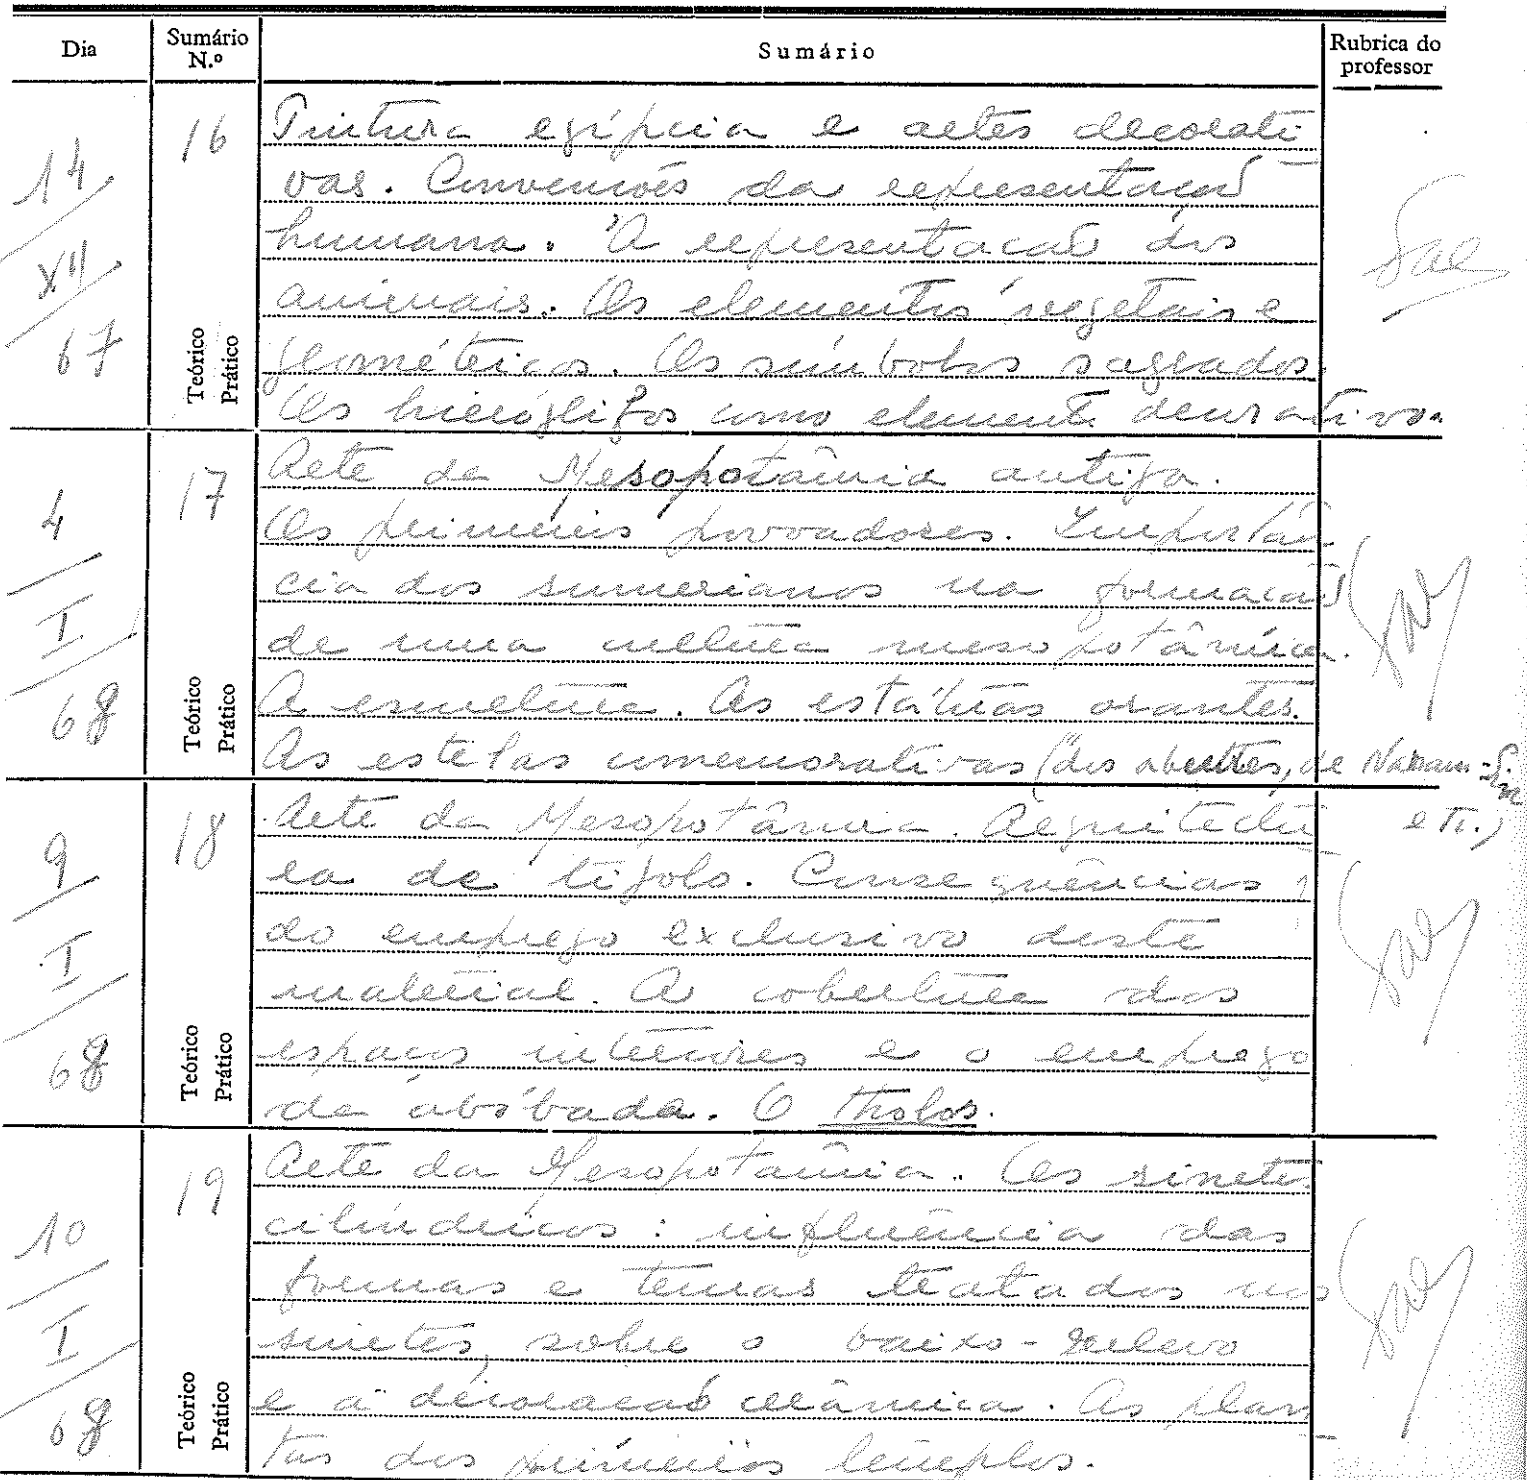 Dia
Sumário N.º
Sumário
Rubrica do professor
14
XII
67
16
Teórico
Prático
Pintura egípcia e artes decorati
vas. Convenções da representação
humana. A representação dos
animais. Os elementos vegetais e
geométricos. Os símbolos sagrados.
Os hieróglifos como elemento decorativo.
4
I
68
17
Teórico
Prático
Arte da Mesopotâmia antiga.
Os primeiros povoadores. Importân
cia dos sumerianos na formação
de uma cultura mesopotâmica.
A escultura. As estátuas orantes.
As estelas comemorativas (dos abutres, de Naram-Sin
etc.)
9
I
68
18
Teórico
Prático
Arte da Mesopotâmia. Arquitectu
ra de tijolo. Consequências
do emprego exclusivo deste
material. A cobertura dos
espaços interiores e o emprego
da abóbada. O tholos.
10
I
68
19
Teórico
Prático
Arte da Mesopotâmia. Os sinetes
cilíndricos: influência das
formas e temas tratados nos
sinetes, sobre o baixo-relevo
e a decoração cerâmica. As plan
tas dos primeiros templos.